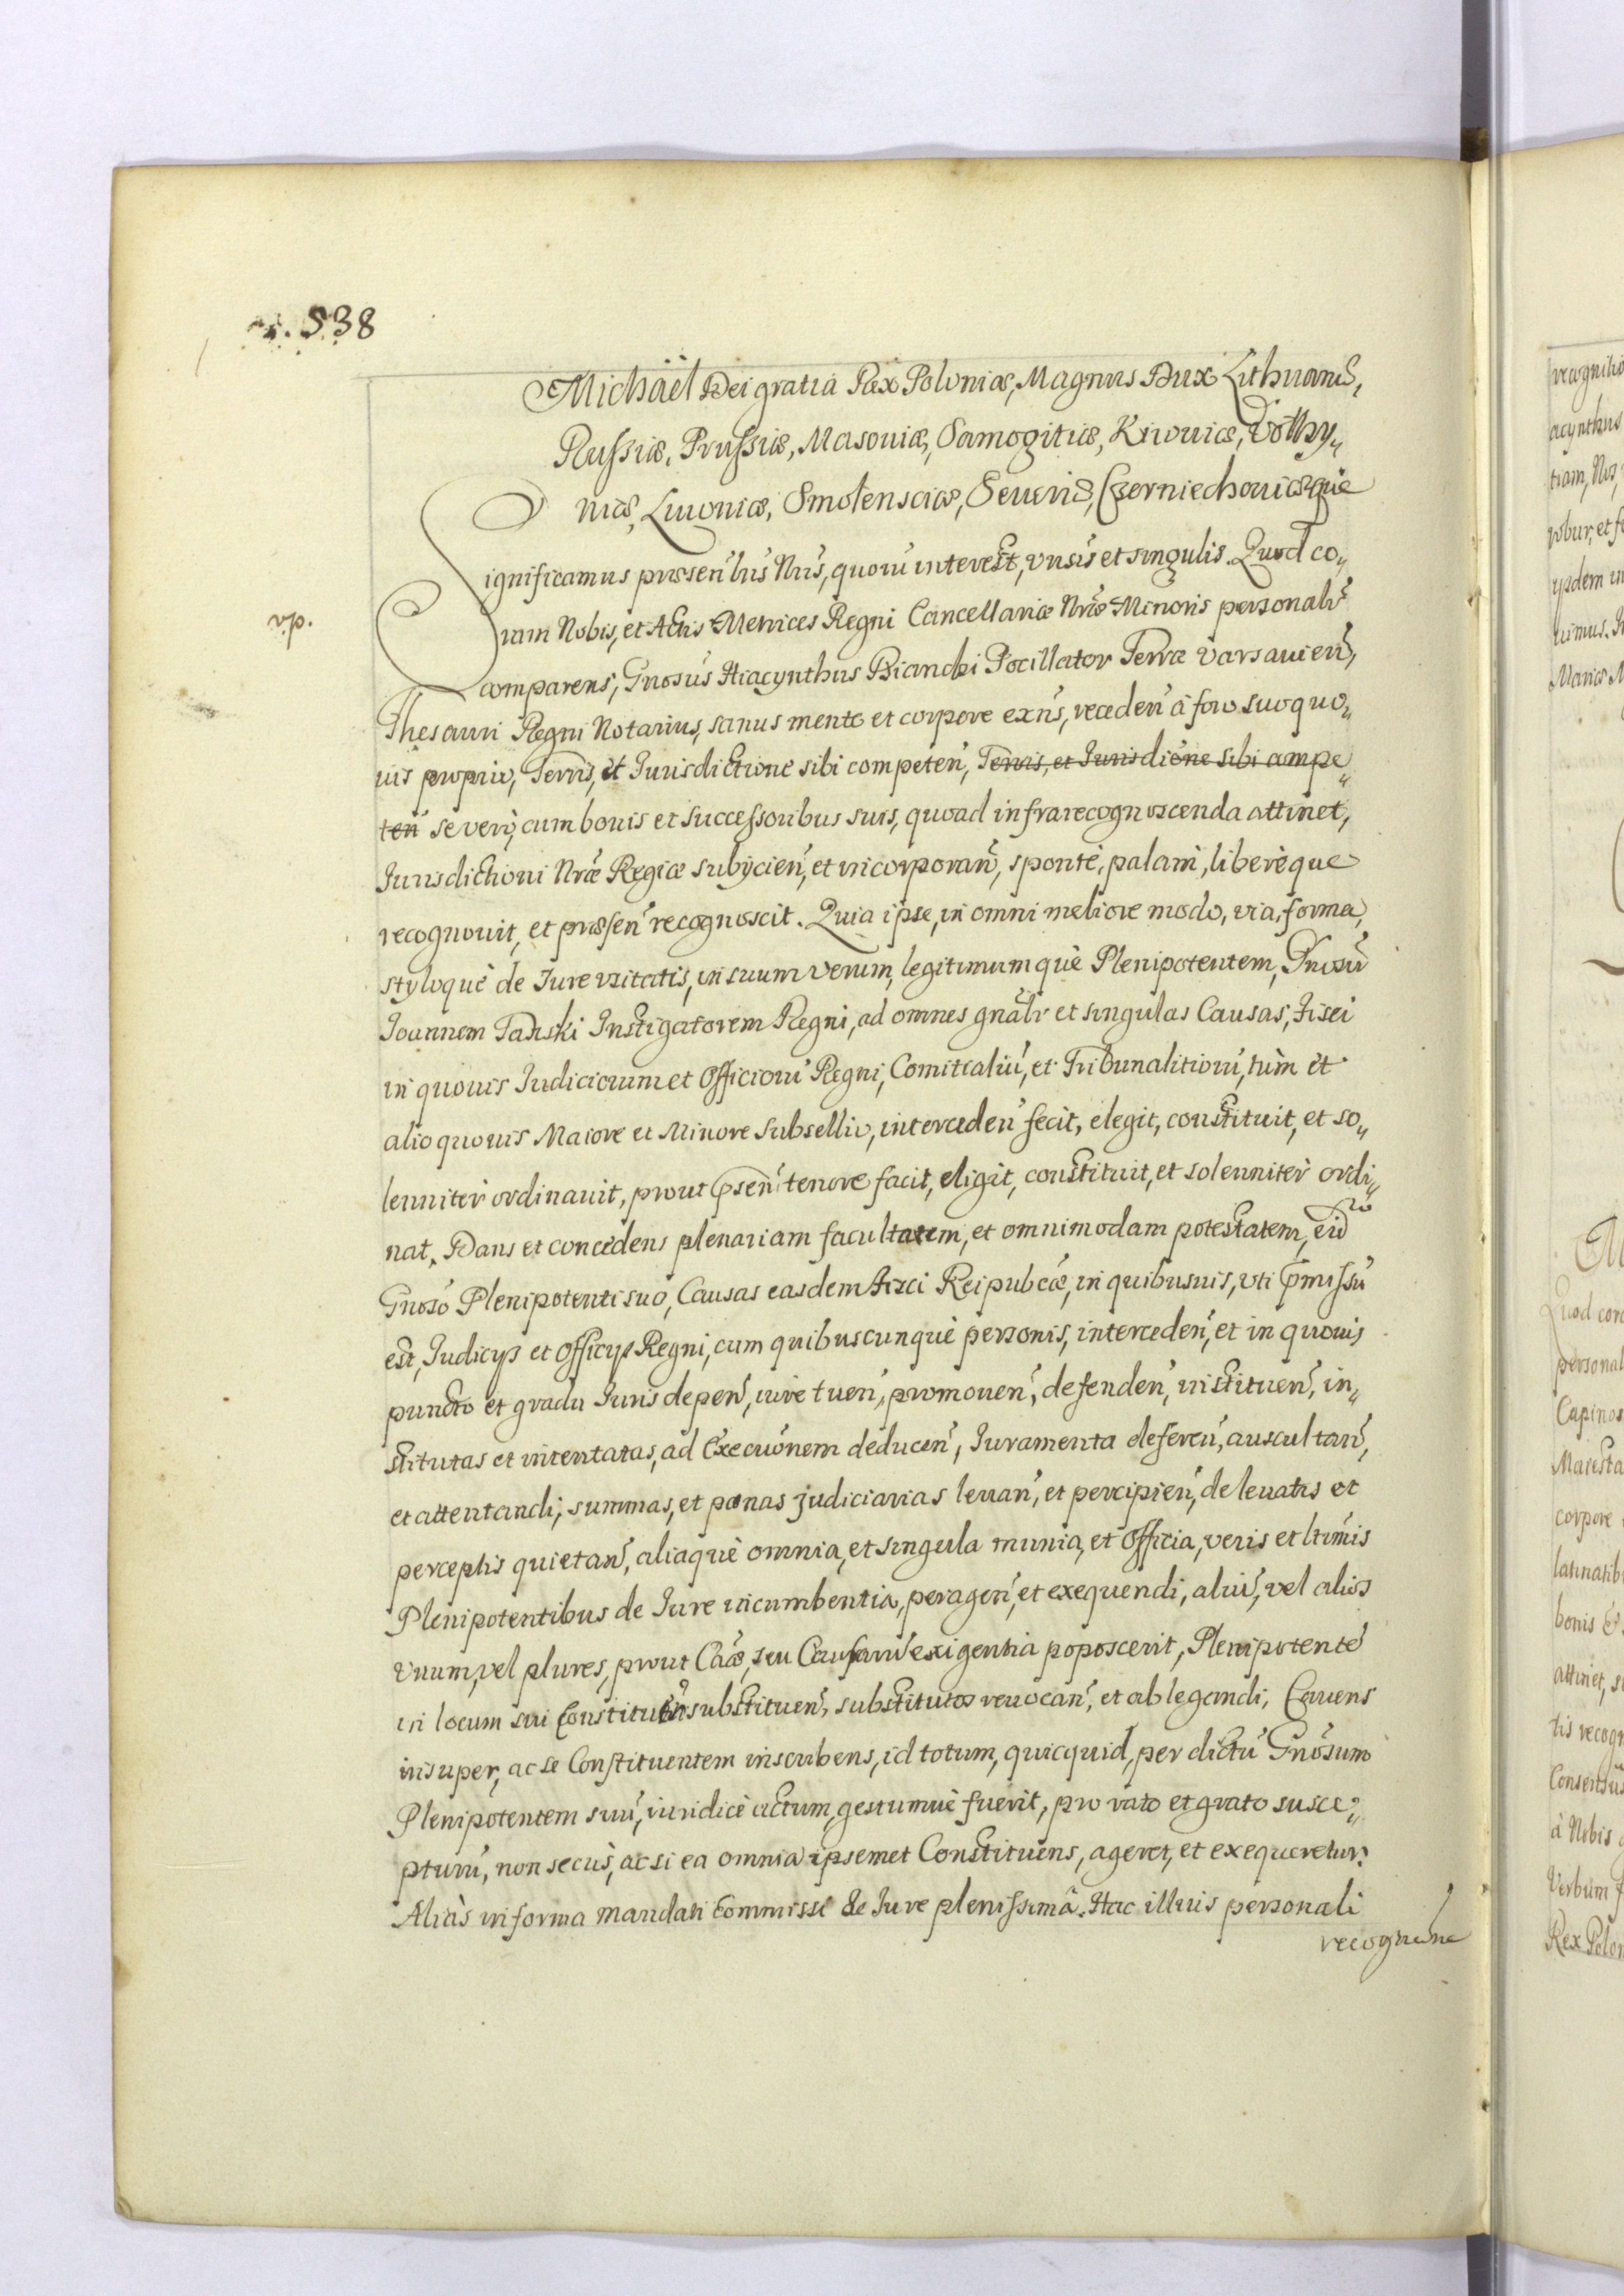 538
Michaël Dei gratia Rex Poloniæ, Magnus Dux Lithuaniæ,
Russiæ, Prussiæ, Masouiæ, Samogitiæ, Kiiouiæ, Volhy„
niæ, Liuoniæ, Smolensciæ, Seueriæ, Czerniechouiæque
Significamus præsen̄ lr̄is Nr̄is, quorū interest, vn̄sis et singulis. Quod co„
ram Nobis, et Actis Metrices Regni Cancellariæ Nr̄æ Minoris personalr̄
comparens, Gn̄osus Hiacynthus Bianchi Pocillator Terræ Varsauien̄,
Thesauri Regni Notarius, sanus mente et corpore exn̄s, receden̄ à foro suo quo„
uis proprio, Terris, et Jurisdictione sibi competen̄, Terris, et Jurisdicōne sibi compe„
ten̄ se verò, cum bonis et successoribus suis, quoad infrarecognoscenda attinet,
Jurisdictioni Nr̄æ Regiæ subijcien̄, et incorporan̄, spontè, palam, liberèque
recognouit, et præsen̄ recognoscit. Quia ipse, in omni meliore modo, via, forma,
styloquè de Jure vsitatis, in suum verum, legitimumquè Plenipotentem, Gn̄osū
Joannem Tański Instigatorem Regni, ad omnes gn̄alr̄ et singulas Causas, Fisci
in quouis Judiciorum et Officiorū Regni, Comitialiū, et Tribunalitiorū, tùm et
alio quouis Maiore et Minore Subsellio, interceden̄ fecit, elegit, constituit, et so„
lenniter ordinauit, prout p̄sen̄ tenore facit, eligit, constituit, et solenniter ordi„
nat. Dans et concedens plenariam facultatem, et omnimodam potestatem, eid
Gn̄oso Plenipotenti suo, Causas easdem Fisci Reipub̄cæ, in quibusuis, vti p̄missū
est, Judicijs et Officijs Regni, cum quibuscunquè personis, interceden̄, et in quouis
puncto et gradu Juris depen̄, iure tuen̄, promouen̄, defenden̄, instituen̄, in„
stitutas et intentatas, ad Execuōnem deducen̄, Juramenta deferen̄, auscultan̄,
et attentandi, summas, et pœnas judiciarias leuan̄, et percipien̄, de leuatis et
perceptis quietan̄, aliaquè omnia, et singula munia, et Officia, veris et ltimis
Plenipotentibus de Jure incumbentia, peragen̄, et exequendi, aliū, vel alios
vnum, vel plures, prout Cāæ, seu Causarū exigentia poposcerit, Plenipotentē
in locum sui Constituen̄ substituen̄, substitutos reuocan̄, et ablegandi, Cauens
insuper, ac se Constituentem inscribens, id totum, quicquid, per dictū Gn̄osum
Plenipotentem suū, iuridicè actum, gestumuè fuerit, pro rato et grato susce„
pturū, non secus, ac si ea omnia ipsemet Constituens, ageret, et exequeretur.
Aliàs in forma mandati commissi de Jure plenissimâ. Hac illius personali
recogn̄one